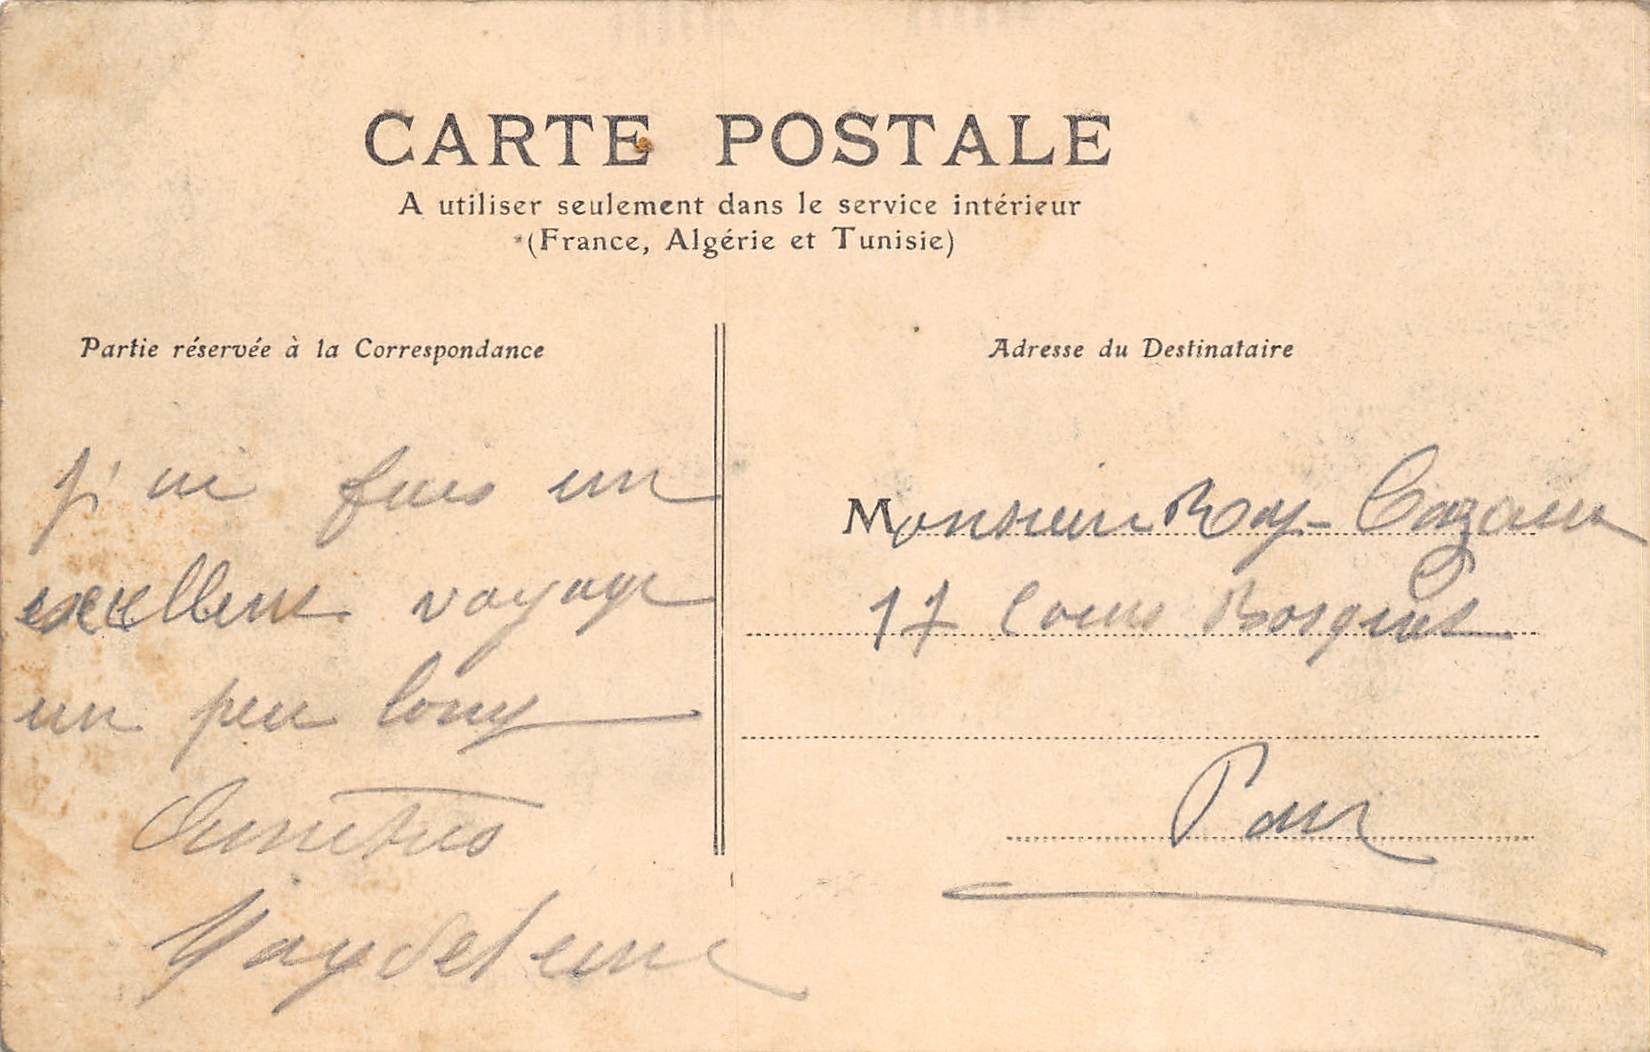 CARTE POSTALE
A utiliser seulement dans le service intérieur
(France, Algérie et Tunisie)
Partie réservée à la Correspondance
j'ai fais un
excellent voyage
un peu long
Amitiés
Magdeleine
Adresse du Destinataire
Monsieur Roy-Cazaux
17 Cours Bosquet
Pau